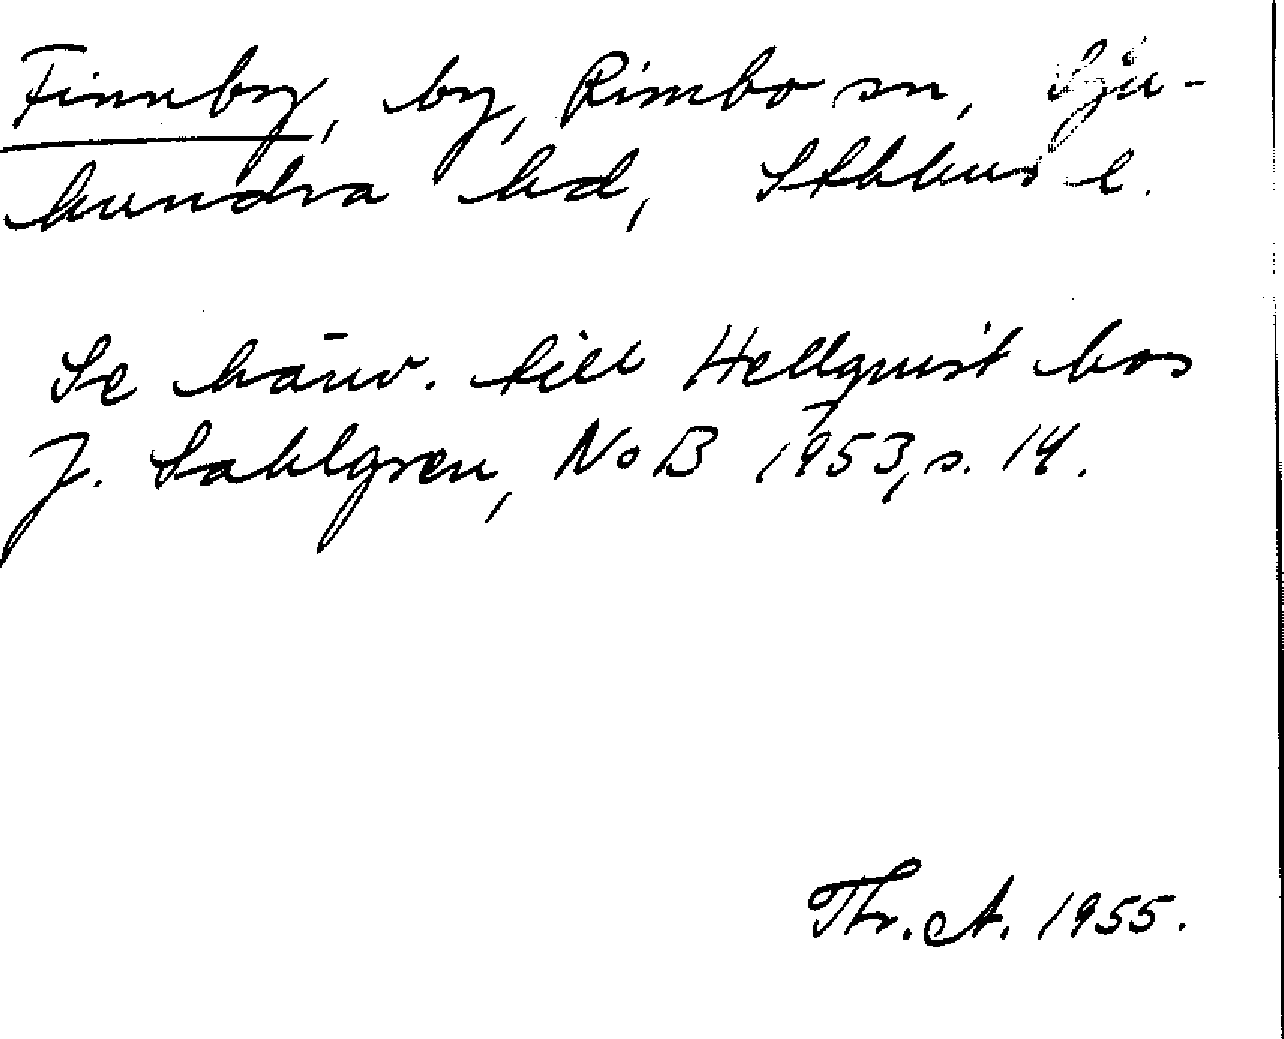 Finnby, by, Rimbo sn, Sju-
hundra hd, Sthlms l.
Se hänv. till Hellquist hos
J. Sahlgren, NoB 1953, s. 14.
Thr. A. 1955.